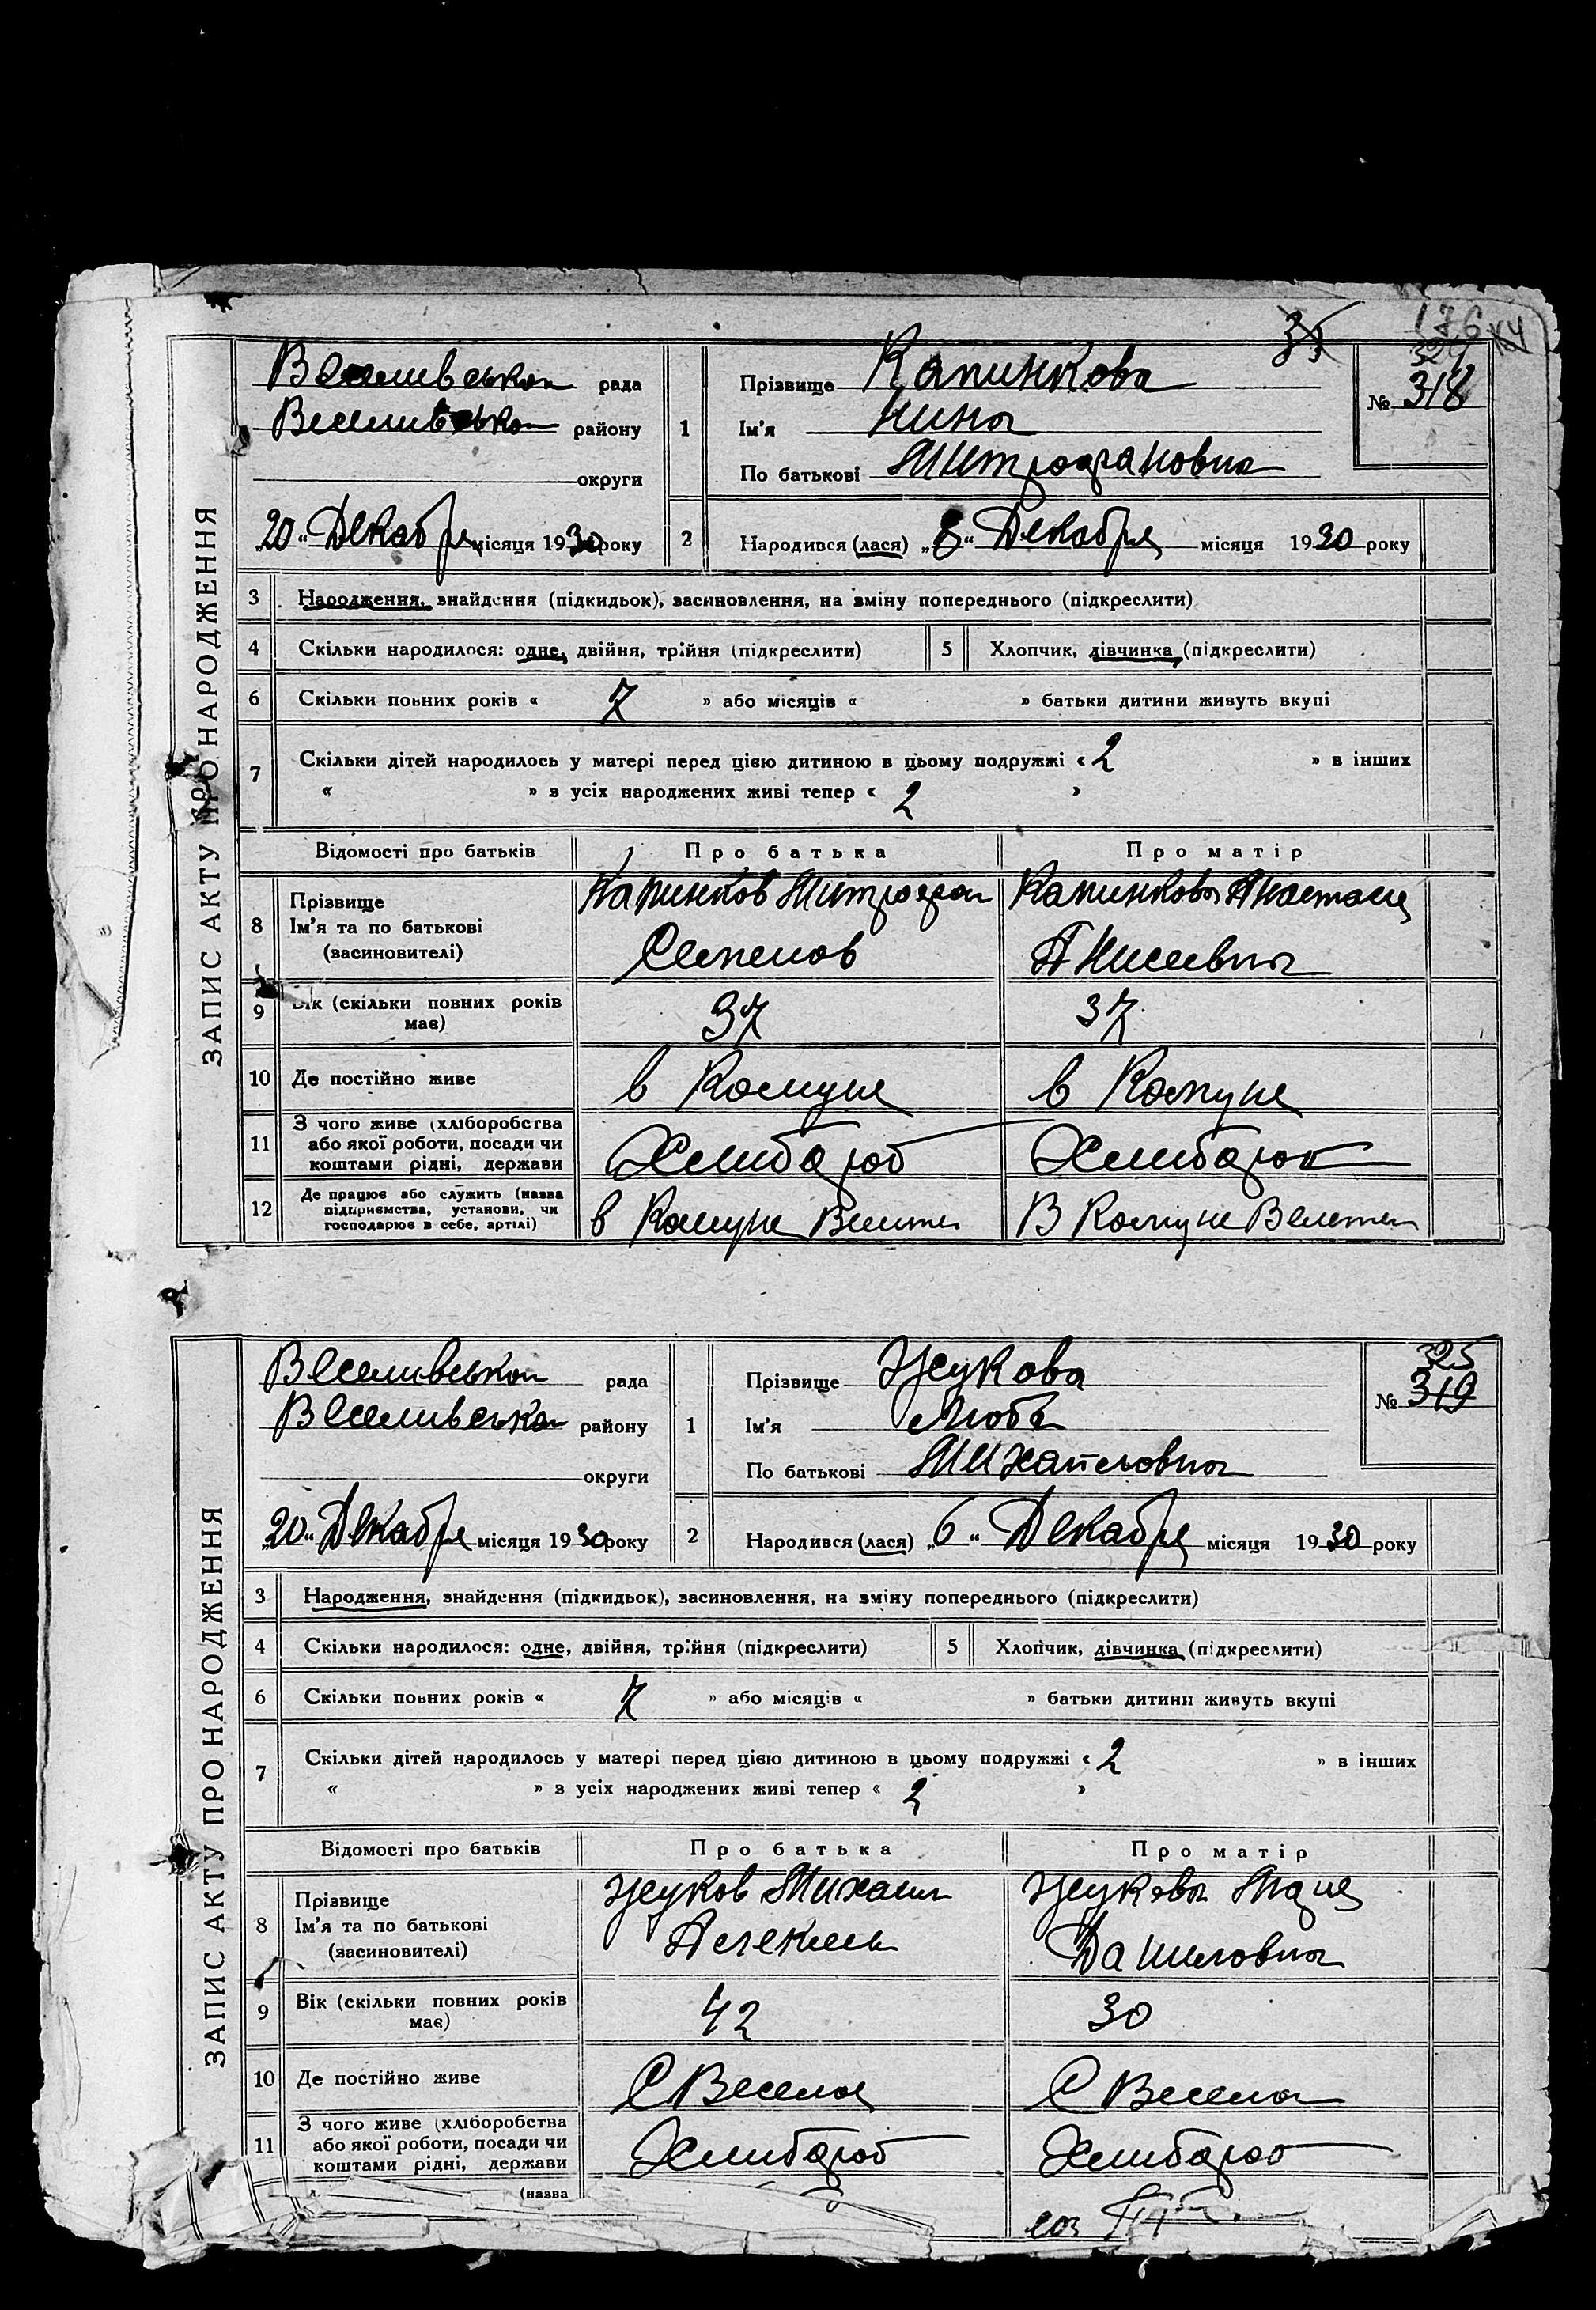 176
35
ЗАПИС АКТУ ПРО НАРОДЖЕННЯ
Веселивськои рада
Веселивськои району
округи
„20“ Декабря місяця 1930 року
1
Прізвище Капинкова
Ім'я Нина
По батькові Митрофановна
324
№ 318
2
Народився (лася) „8“ Декабря місяця 1930 року
3 Народження, знайдення (підкидьок), засиновлення, на зміну попереднього (підкреслити)
4 Скільки народилося: одне, двійня, трійня (підкреслити) 5 Хлопчик, дівчинка (підкреслити)
6 Скільки повних років « 7 » або місяців « » батьки дитини живуть вкупі
7 Скільки дітей народилось у матері перед цією дитиною в цьому подружжі « 2 » в інших
« » з усіх народжених живі тепер « 2 »
Відомості про батьків Про батька Про матір
8 Прізвище Ім'я та по батькові (засиновителі)
Капинков Митрофан Семенов
Капинкова Анастасия Анисивна
9 Вік (скільки повних років має) 37 37
10 Де постійно живе в Комуне в Комуне
11 З чого живе (хліборобства або якої роботи, посади чи коштами рідні, держави
Хлибароб Хлибароб
12 Де працює або служить (назва підприємства, установи, чи господарює в себе, артілі)
в Комуне В Комуне
ЗАПИС АКТУ ПРО НАРОДЖЕННЯ
Веселивськои рада
Веселивськои району
округи
„20“ Декабря місяця 1930 року
1
Прізвище Жукова
Ім'я Люба
По батькові Михайловна
325
№ 319
2
Народився (лася) „6“ Декабря місяця 1930 року
3 Народження, знайдення (підкидьок), засиновлення, на зміну попереднього (підкреслити)
4 Скільки народилося: одне, двійня, трійня (підкреслити) 5 Хлопчик, дівчинка (підкреслити)
6 Скільки повних років « 7 » або місяців « » батьки дитини живуть вкупі
7 Скільки дітей народилось у матері перед цією дитиною в цьому подружжі « 2 » в інших
« » з усіх народжених живі тепер « 2 »
Відомості про батьків Про батька Про матір
8 Прізвище Ім'я та по батькові (засиновителі)
Жуков Михаил
Жукова Мария Даниловна
9 Вік (скільки повних років має) 42 30
10 Де постійно живе С Весела С Весела
11 З чого живе (хліборобства або якої роботи, посади чи коштами рідні, держави
Хлибароб Хлибароб
(назва
соз